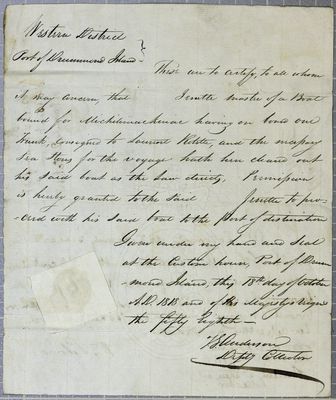 Western District
Port of Drummond Island
These are to Certify, to all whom
it may concern, that master of a Boat
bound for Michilimackinac having on board one
Trunk Consigned to Laurent and the necessary
Sea for the voyage hath here cleared out
his said boat as the Law directs, Permission
is hereby granted to the said to pro-
-ceed with his said boat to the Port of destination
Given under my hand and Seal
at the Custom house, Port of Drum-
mond Island, this 18th day of October
A.D. 1818 and of His Majestys Reign
the fifty Eighth
Anderson
Depty Collector